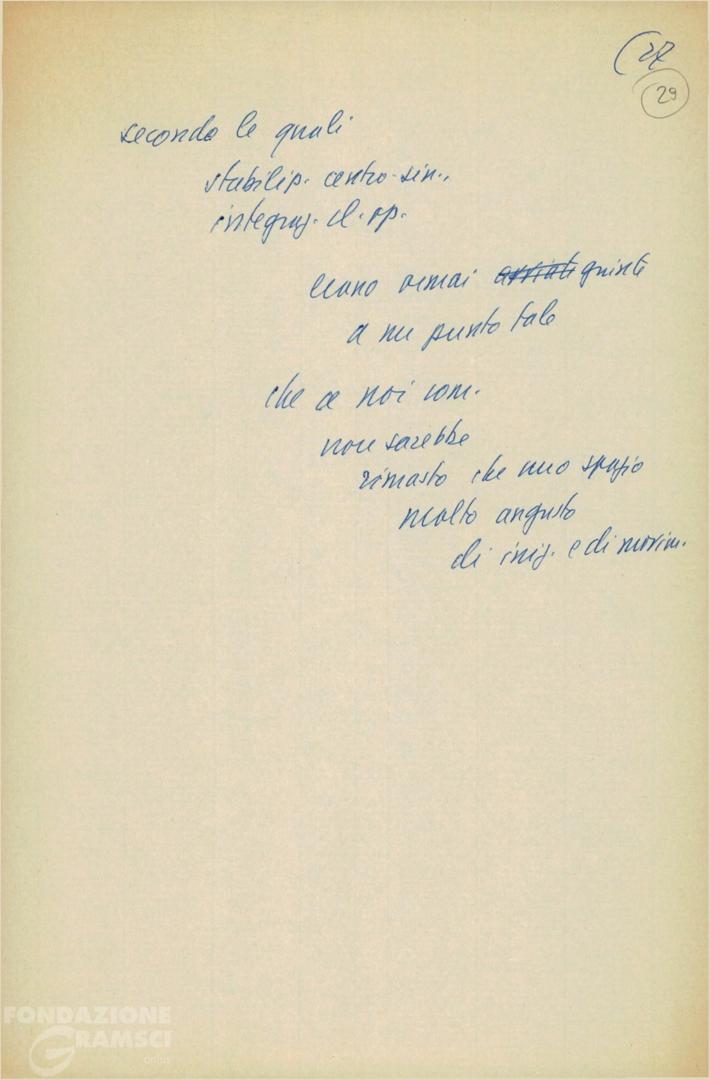 (27
29
secondo le quali
stabilip. centro-sin.,
integraz. cl. op.
erano ormai giunte
a un punto tale
che a noi com.
non sarebbe
rimasto che uno spazio
molto angusto
di iniz. e di movim.
FONDAZIONE
GRAMSCI
onlus